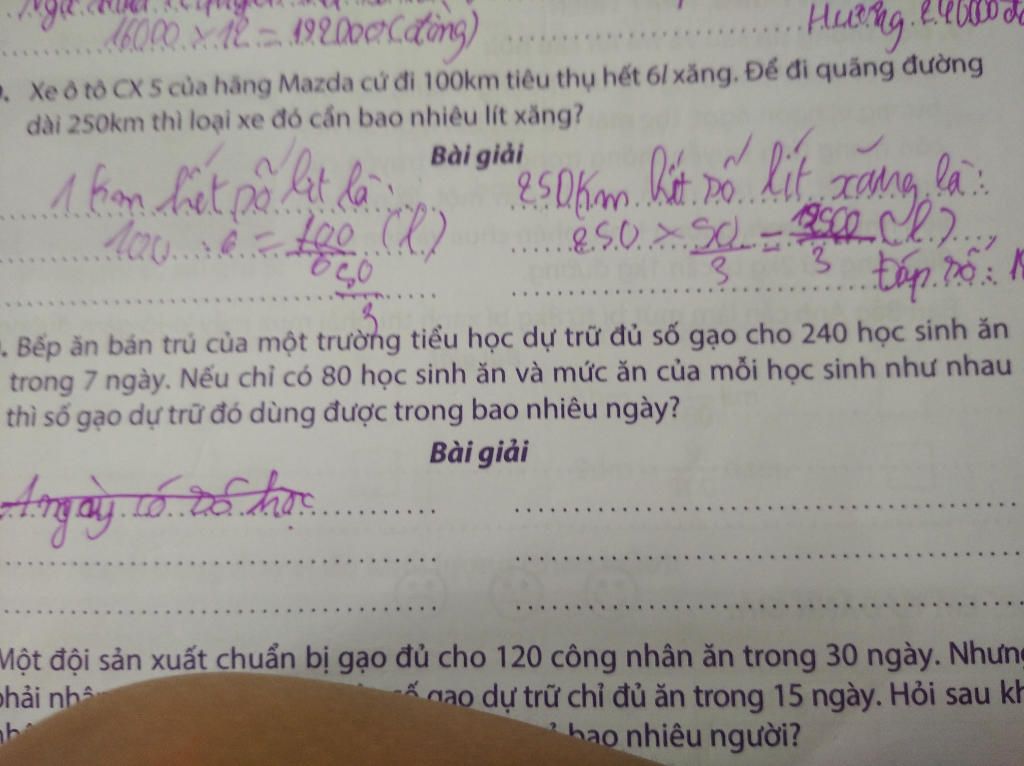 16000 × 12 = 192000 (đồng)
Hương. 240000 đ
Xe ô tô CX 5 của hãng Mazda cứ đi 100km tiêu thụ hết 6l xăng. Để đi quãng đường
dài 250km thì loại xe đó cần bao nhiêu lít xăng?
Bài giải
1 Km hết số lít là:
100 : 6 = 100/6 (l)
50/3
250Km hết số lít xăng là:
250 × 50/3 = 12500/3 (l)
Đáp số: 1
Bếp ăn bán trú của một trường tiểu học dự trữ đủ số gạo cho 240 học sinh ăn
trong 7 ngày. Nếu chỉ có 80 học sinh ăn và mức ăn của mỗi học sinh như nhau
thì số gạo dự trữ đó dùng được trong bao nhiêu ngày?
Bài giải
1 ngày có số học
Một đội sản xuất chuẩn bị gạo đủ cho 120 công nhân ăn trong 30 ngày. Nhưng
phải gạo dự trữ chỉ đủ ăn trong 15 ngày. Hỏi sau
bao nhiêu người?